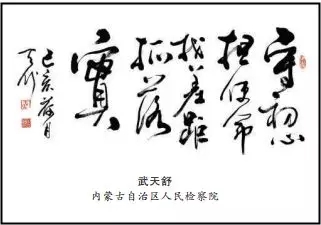 守初心
担使命
找差距
抓落
实
己亥荷月
天舒
武天舒
内蒙古自治区人民检察院